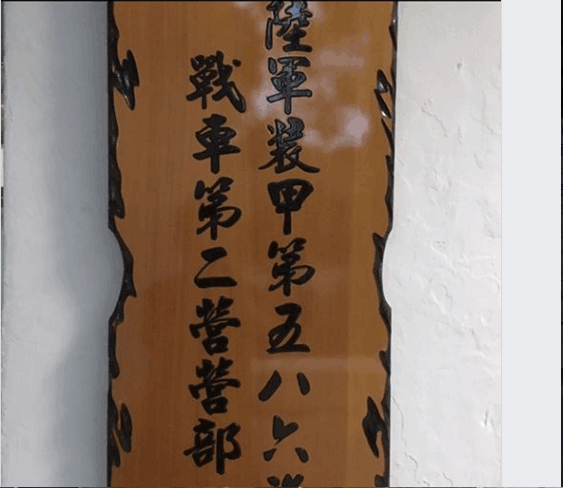 陸軍裝甲第五八六
戰車第二營營部